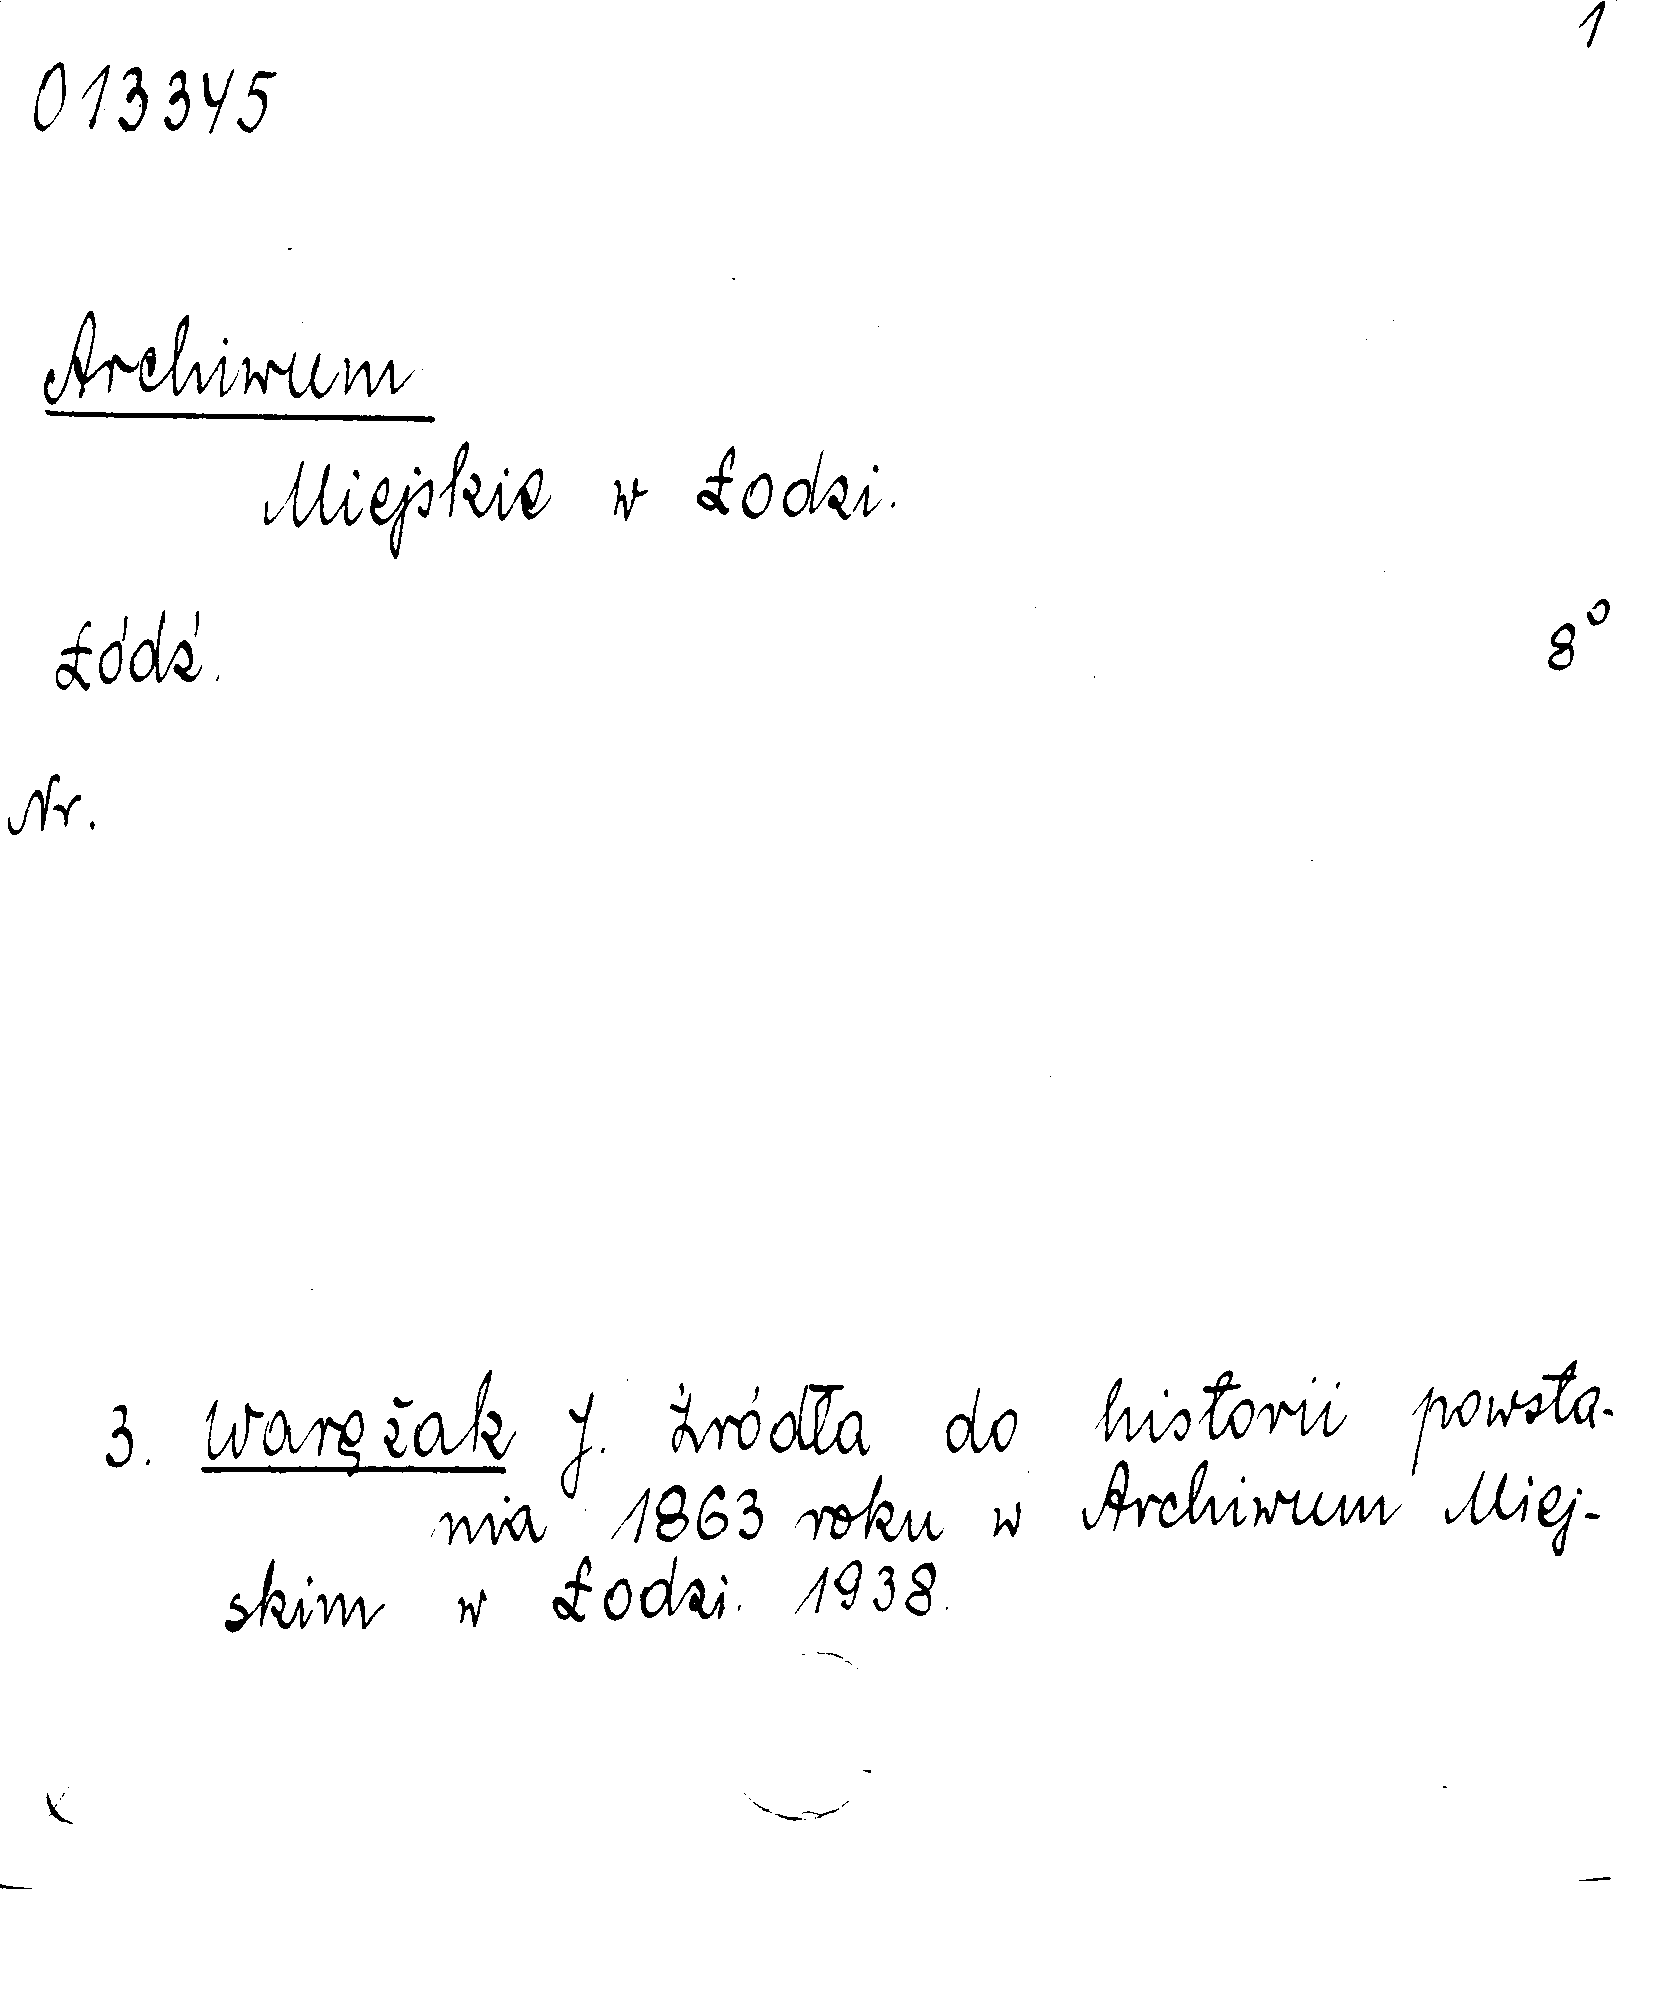 1
013345
Archiwum
Miejskie w Łodzi.
Łódź. 8°
Nr.
3. Warężak J. Źródła do historii powsta-
nia 1863 roku w Archiwum Miej-
skim w Łodzi. 1938.